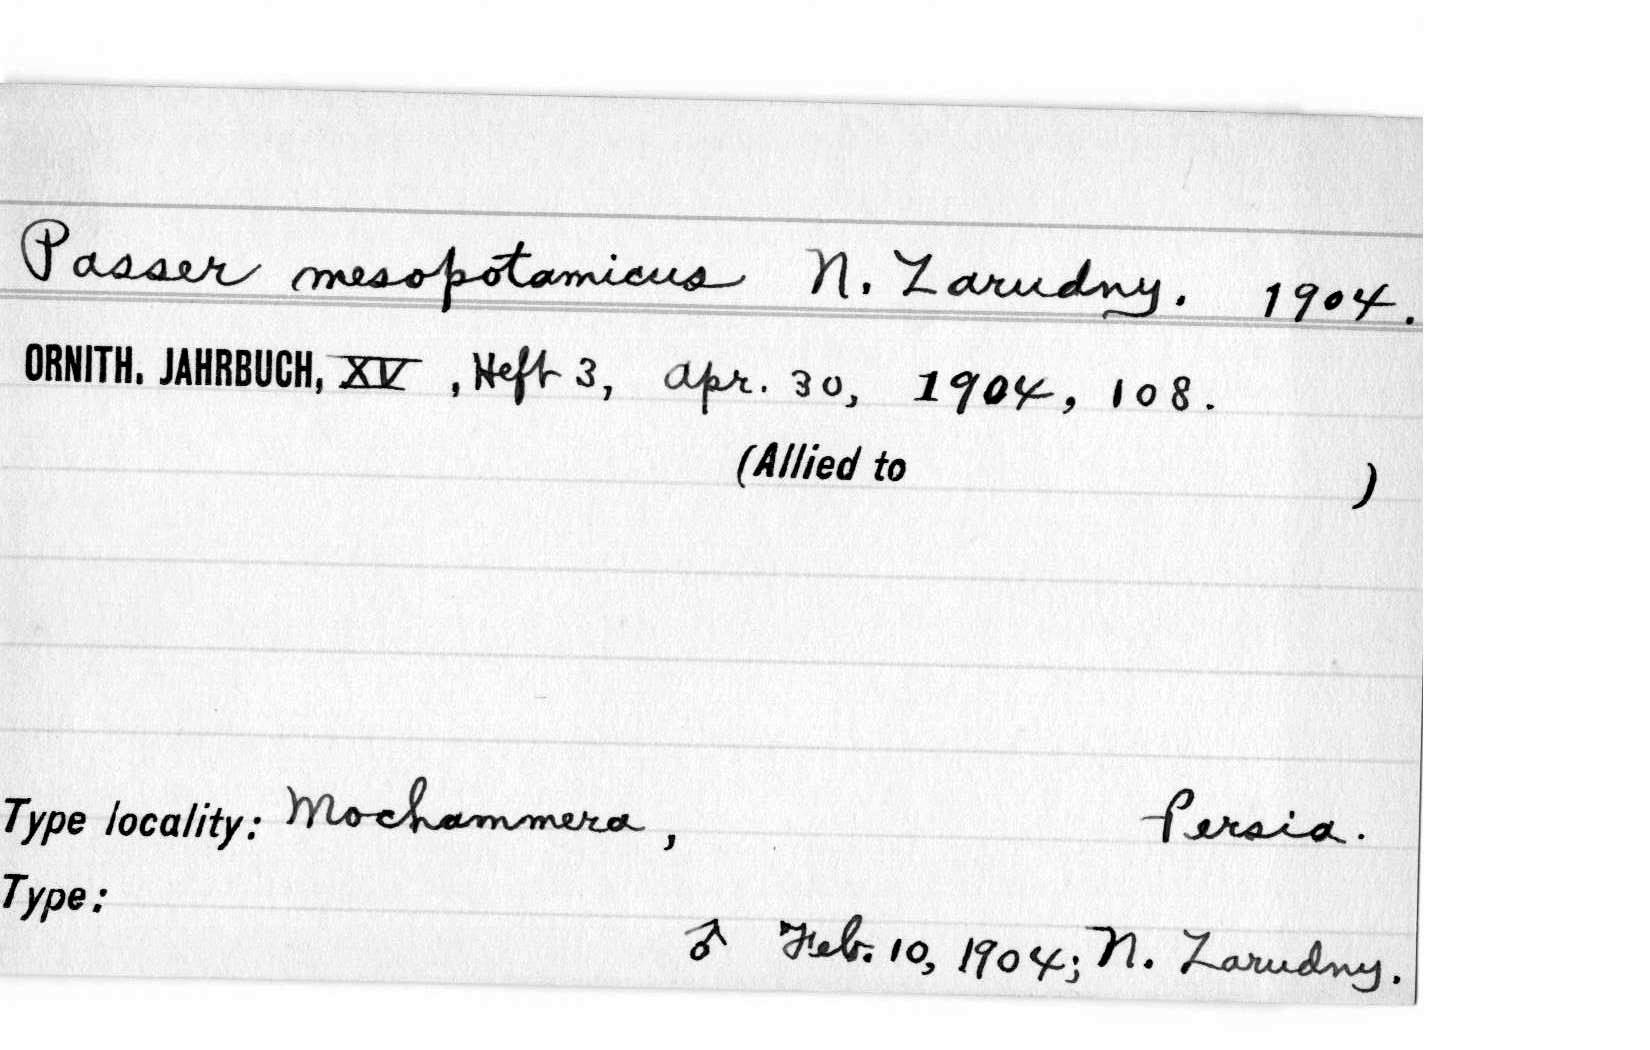 Passer mesopotamicus N. Zarudny. 1904.
ORNITH. JAHRBUCH, XV, Heft 3, Apr. 30, 1904, 108.
(Allied to )
Type locality: Mochammera, Persia.
Type:
♂ Feb. 10, 1904; N. Zarudny.